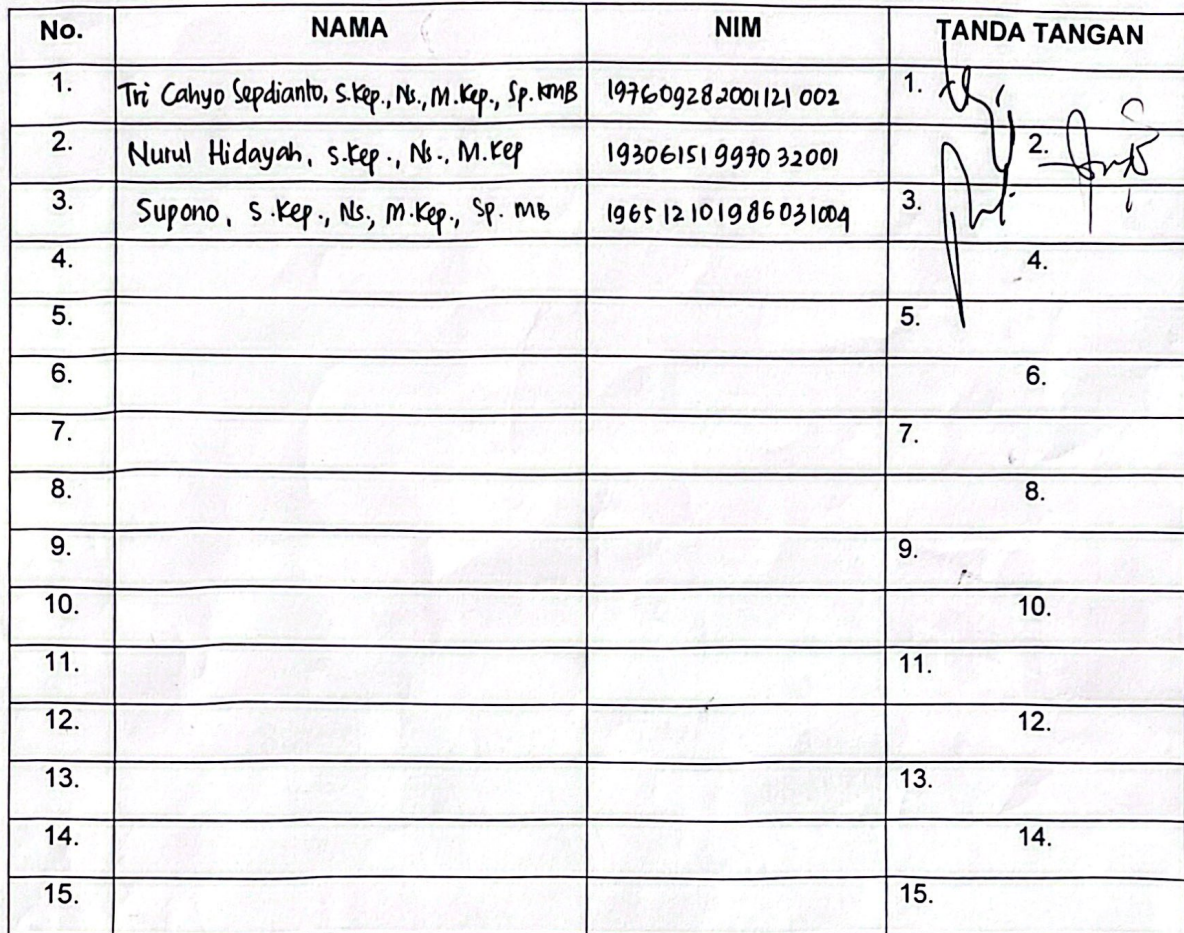 No. NAMA NIM TANDA TANGAN
1. Tri Cahyo Sepdianto, S.Kep., Ns., M.Kep., Sp.KMB 197609282001121 002 1.
2. Nurul Hidayah, S.Kep., Ns., M.Kep 193061519970 32001 2.
3. Supono, S.Kep., Ns., M.Kep., Sp. MB 196512101986031004 3.
4. 4.
5. 5.
6. 6.
7. 7.
8. 8.
9. 9.
10. 10.
11. 11.
12. 12.
13. 13.
14. 14.
15. 15.